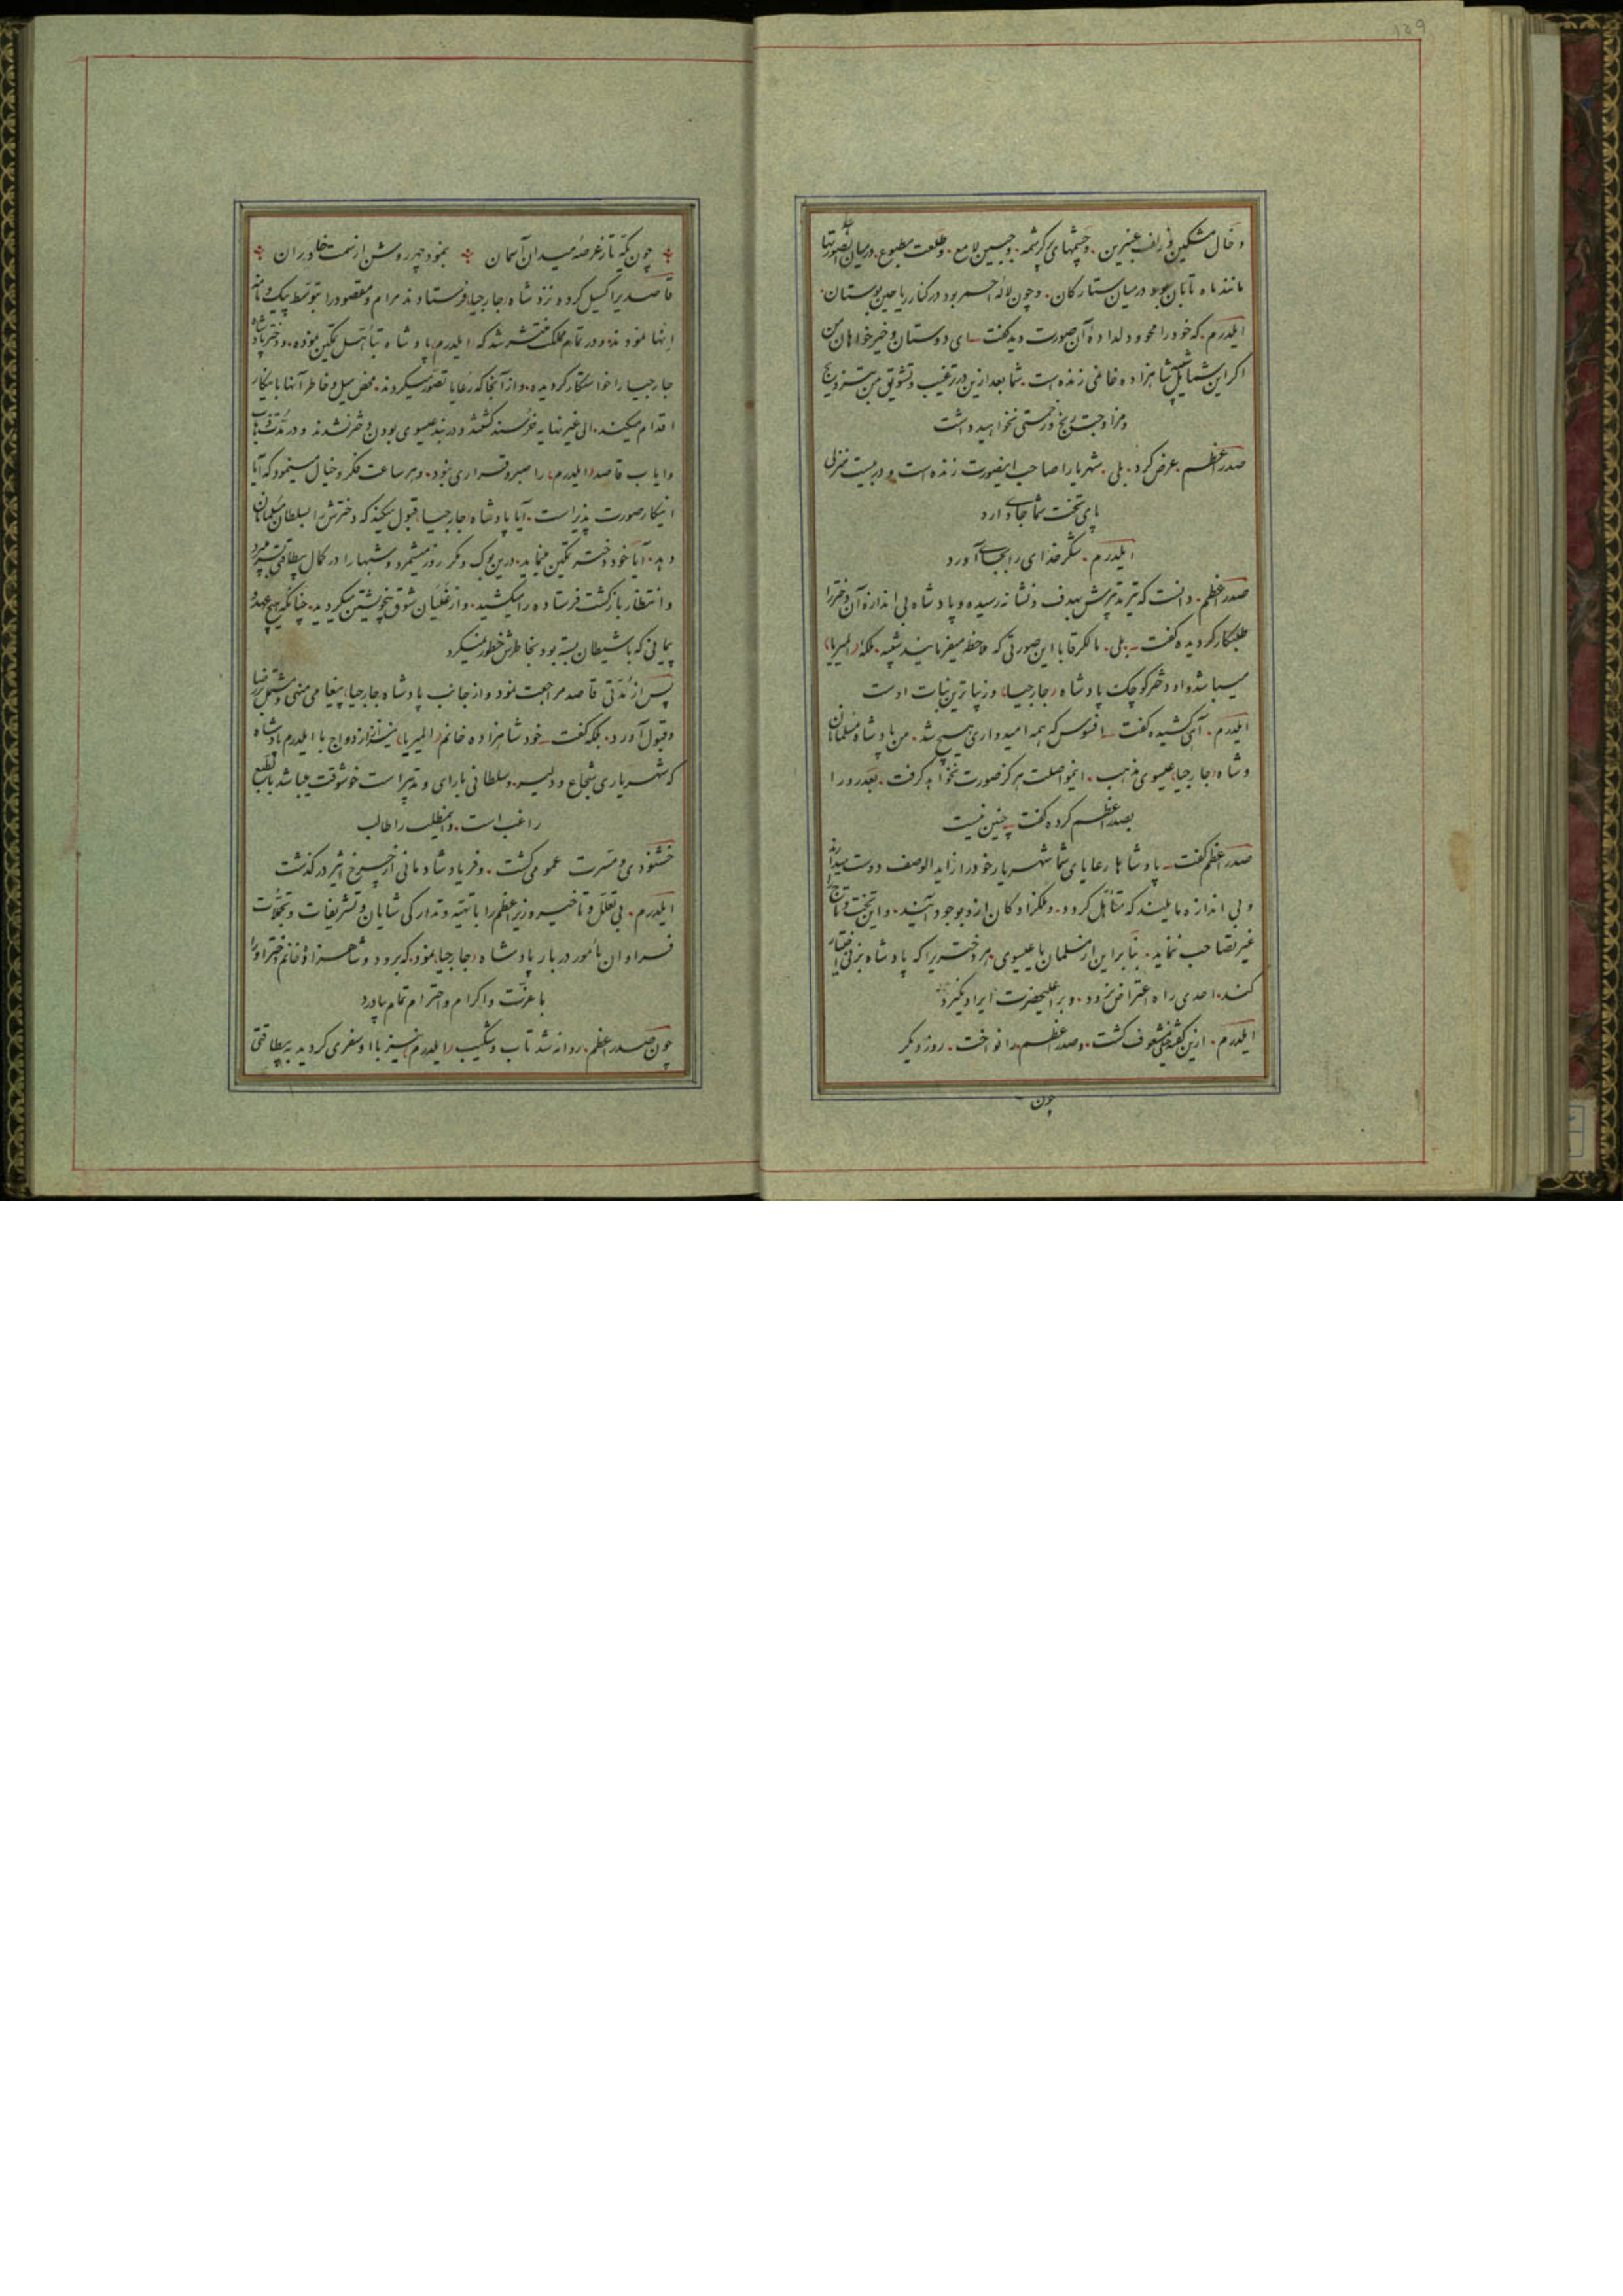 ۱۵۹
و خال مشکین و زلف عنبرین . و چشمهای پرکرشمه . و جبین لامع . و طلعت مطبوع . در میان
مانند ماه تابان بود در میان ستارکان . و چون لاله احمر بود در کنار ریاحین بوستان .
ایلدرم . که خود را محو و دلداده آن صورت دید کفت ای دوستان و خیرخواهان من
اکر این شمایل شاهزاده خانمی زنده است . شما بعد ازین در ترغیب و تشویق من بتزویج
و مزاوجت رنج و زحمتی نخواهید داشت
صدر اعظم . عرض کرد . بلی . شهریارا صاحب اینصورت زنده است و در بیست منزلی
پای تخت شما جای دارد
ایلدرم . شکر خدای را بجای آورد
صدر اعظم . دانست که تیر تدبیرش بهدف و نشانه رسیده و پادشاه بی اندازه آن دختر را
طلبکار کردیده کفت بلی . مالک رقابا این صورتی که ملاحظه میفرمایند شبیه . ملکه (المیریا)
میباشد و او دختر کوچک پادشاه (جارجیا) و زیباترین بنات اوست
ایلدرم . آهی کشیده کفت افسوس که همه امیدواری هیچ شد . من پادشاه مسلمانان
و شاه (جارجیا) عیسوی مذهب . اینمواصلت هرکز صورت نخواهد کرفت . بعد رو را
بصدر اعظم کرده کفت چنین نیست
صدر اعظم کفت پادشاها رعایای شما شهریار خود را زاید الوصف دوست میدارند
و بی اندازه مایلند که متأهل کردد . و ملکزادکان ازو بوجود آیند . و این تخت و تاج را
غیر تصاحب ننماید . بنابراین از مسلمان یا عیسوی هر دختریرا که پادشاه بزنی اختیار
کنند . احدی راه اعتراض نرود . و بر اعلیحضرت ایراد نکیرد
ایلدرم . ازین کفته خیلی مشعوف کشت . و صدر اعظم را نواخت . روز دیکر
چون
چون یکه تاز عرصهٔ میدان آسمان بنمود چهر روشن از سمت خاوران
قاصدیرا کسیل کرده نزد شاه (جارجیا) فرستادند مرام و مقصود را بتوسط پیک و نامه
انها نمودند و در تمام ملک منتشر شد که (ایلدرم) پادشاه بتأهل تمکین نموده . و دختر پادشاه
جارجیا را خواستکار کردیده . و از آنجا که رعایا تصور میکردند . محض میل و خاطر آنها باینکار
اقدام میکند . الی غیر نهایه خرسند کشتند و در بند عیسوی بودن دختر نشدند و در مدت ذهاب
و ایاب قاصد (ایلدرم) را صبر و قراری نبود . و هر ساعت فکر و خیال مینمود که آیا
اینکار صورت پذیر است . آیا پادشاه (جارجیا) قبول میکند که دخترش را بسلطان مسلمانان
دهد . آیا خود دختر تمکین مینماید . درین بوک و مکر روز میشمرد و شبها را در کمال بیطاقتی بسر میبرد
و انتظار بازکشت فرستاده را میکشید . و از غلیان شوق بیخویشتن میکردید . چنانکه هیچ عهد و
پیمانی که با شیطان بسته بود بخاطرش خطور نمیکرد
پس از مدتی قاصد مراجعت نمود و از جانب پادشاه (جارجیا) پیغامی مبنی و مشتمل بر رضا
و قبول آورد . بلکه کفت خود شاهزاده خانم (المیریا) نیز از ازدواج با ایلدرم پادشاه
که شهریاری شجاع و دلیر . و سلطانی با رای و تدبیر است خوشوقت میباشد بالطبع
راغب است . و اینمطلب را طالب
خشنودی و مسرت عمومی کشت . و فریاد شادمانی از چرخ اثیر در کذشت
ایلدرم . بی تعلل و تأخیر وزیر اعظم را با تهیه و تدارکی شایان و تشریفات و تجملات
فراوان مأمور دربار پادشاه (جارجیا) نمود . که برود و شاهزاده خانم دختر او را
با عزت و اکرام و احترام تمام بیاورد
چون صدر اعظم . روانه شد تاب و شکیب (ایلدرم) نیز با او سفری کردید بیطاقتی